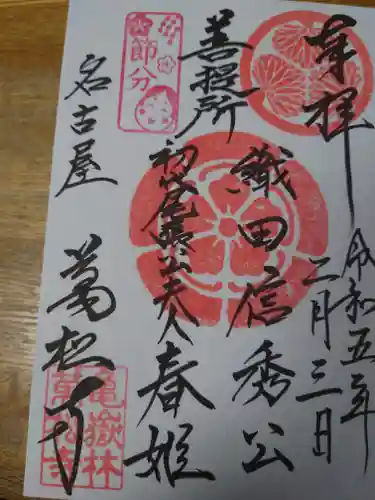 奉拝
令和五年
二月三日
織田信秀公
菩提所
初代尾張公夫人春姫
節分
名古屋
萬松寺
亀嶽林
萬松寺